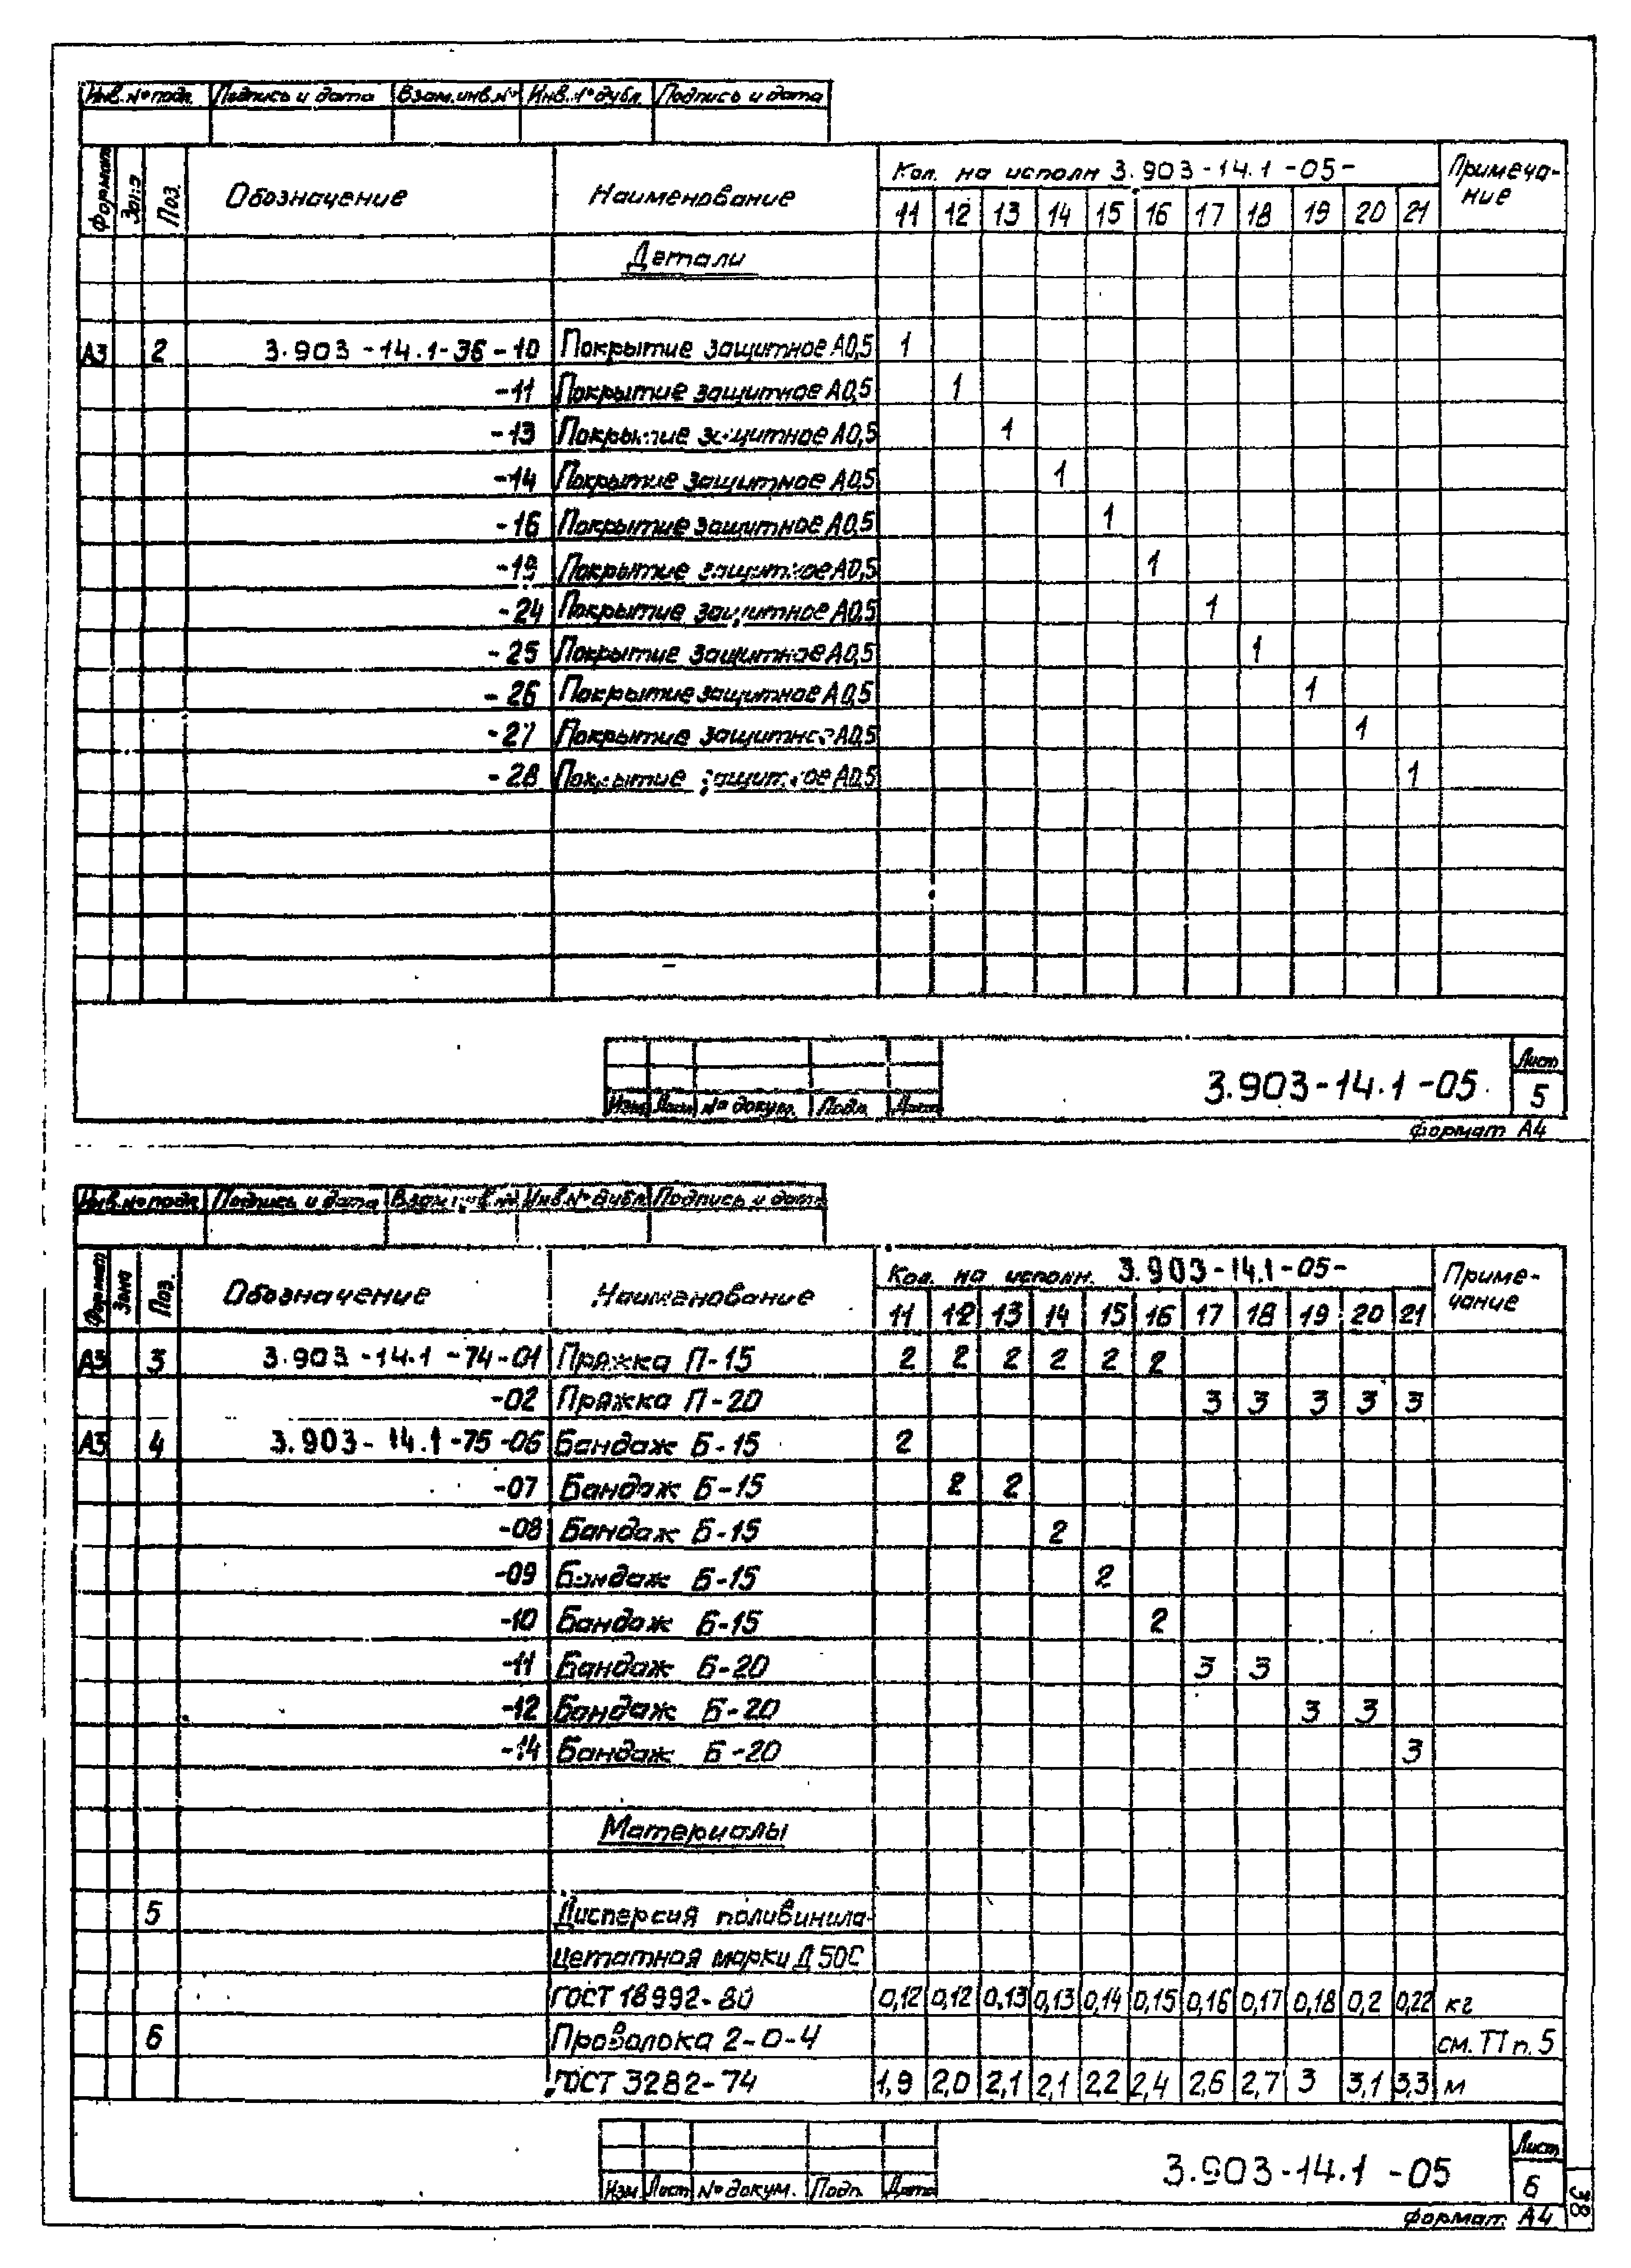 Инв.№ подл. Подпись и дата Взам.инв.№ Инв.№ дубл. Подпись и дата
Формат Зона Поз. Обозначение Наименование Кол. на исполн 3.903-14.1-05- Примеча-
ние
11 12 13 14 15 16 17 18 19 20 21
Детали
А3 2 3.903-14.1-36-10 Покрытие защитное А0,5 1
-11 Покрытие защитное А0,5 1
-13 Покрытие защитное А0,5 1
-14 Покрытие защитное А0,5 1
-16 Покрытие защитное А0,5 1
-19 Покрытие защитное А0,5 1
-24 Покрытие защитное А0,5 1
-25 Покрытие защитное А0,5 1
-26 Покрытие защитное А0,5 1
-27 Покрытие защитное А0,5 1
-28 Покрытие защитное А0,5 1
3.903-14.1-05
Лист
5
Изм Лист № докум. Подп. Дата
формат А4
Инв.№ подл. Подпись и дата Взам.инв.№ Инв.№ дубл. Подпись и дата
Формат Зона Поз. Обозначение Наименование Кол. на исполн. 3.903-14.1-05- Приме-
чание
11 12 13 14 15 16 17 18 19 20 21
А3 3 3.903-14.1-74-01 Пряжка П-15 2 2 2 2 2 2
-02 Пряжка П-20 3 3 3 3 3
А3 4 3.903-14.1-75-06 Бандаж Б-15 2
-07 Бандаж Б-15 2 2
-08 Бандаж Б-15 2
-09 Бандаж Б-15 2
-10 Бандаж Б-15 2
-11 Бандаж Б-20 3 3
-12 Бандаж Б-20 3 3
-14 Бандаж Б-20 3
Материалы
5 Дисперсия поливинила-
цетатная марки Д 50С
ГОСТ 18992-80 0,12 0,12 0,13 0,13 0,14 0,15 0,16 0,17 0,18 0,2 0,22 кг
6 Проволока 2-О-4 см. ТТ п. 5
ГОСТ 3282-74 1,9 2,0 2,1 2,1 2,2 2,4 2,6 2,7 3 3,1 3,3 м
3.903-14.1-05
Лист
6
Изм Лист № докум. Подп. Дата
формат А4
38